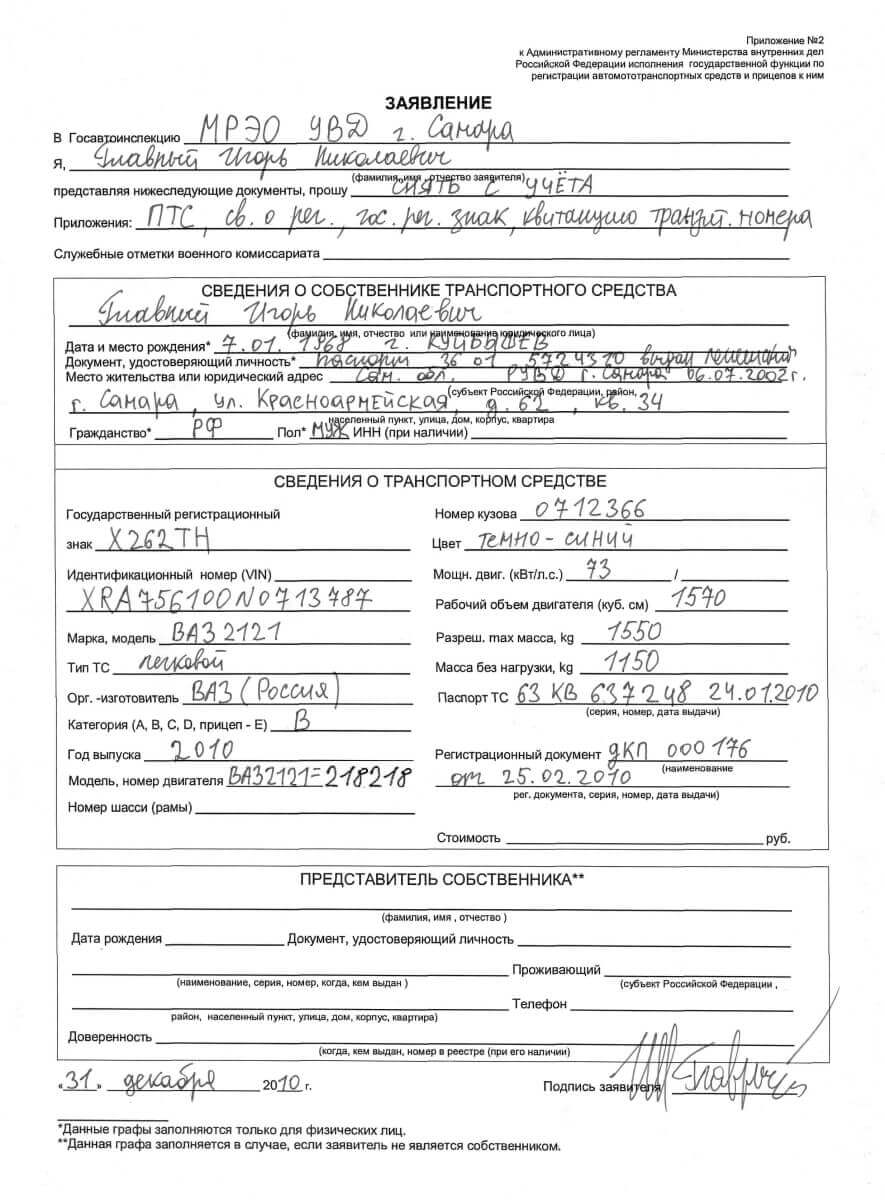 Приложение №2
к Административному регламенту Министерства внутренних дел
Российской Федерации исполнения государственной функции по
регистрации автомототранспортных средств и прицепов к ним
ЗАЯВЛЕНИЕ
В Госавтоинспекцию МРЭО УВД г. Самара
Я, Главный Игорь Николаевич
(фамилия, имя, отчество заявителя)
представляя нижеследующие документы, прошу СНЯТЬ С УЧЁТА
Приложения: ПТС, св. о рег., гос. рег. знак, квитанцию транзит. номера
Служебные отметки военного комиссариата
СВЕДЕНИЯ О СОБСТВЕННИКЕ ТРАНСПОРТНОГО СРЕДСТВА
Главный Игорь Николаевич
(фамилия, имя, отчество или наименование юридического лица)
Дата и место рождения* 7.01. 1968 г. КУЙБЫШЕВ
Документ, удостоверяющий личность* паспорт 36 01 5724320 выдан Ленинский
Место жительства или юридический адрес Сам. обл. РУВД г. Самара 06.07.2002 г.
(субъект Российской Федерации, район,
г. Самара, ул. Красноармейская, д. 62, кв. 34
населенный пункт, улица, дом, корпус, квартира
Гражданство* РФ Пол* МУЖ ИНН (при наличии)
СВЕДЕНИЯ О ТРАНСПОРТНОМ СРЕДСТВЕ
Государственный регистрационный
знак Х262ТН
Идентификационный номер (VIN)
XRA756100N0713787
Марка, модель ВАЗ 2121
Тип ТС легковой
Орг. -изготовитель ВАЗ (Россия)
Категория (A, B, C, D, прицеп - E) B
Год выпуска 2010
Модель, номер двигателя ВАЗ2121=218218
Номер шасси (рамы)
Номер кузова 0712366
Цвет темно-синий
Мощн. двиг. (кВт/л.с.) 73 /
Рабочий объем двигателя (куб. см) 1570
Разреш. max масса, kg 1550
Масса без нагрузки, kg 1150
Паспорт ТС 63 КВ 637248 24.01.2010
(серия, номер, дата выдачи)
Регистрационный документ ДКП 000176
(наименование
от 25.02.2010
рег. документа, серия, номер, дата выдачи)
Стоимость руб.
ПРЕДСТАВИТЕЛЬ СОБСТВЕННИКА**
(фамилия, имя , отчество )
Дата рождения Документ, удостоверяющий личность
Проживающий
(наименование, серия, номер, когда, кем выдан ) (субъект Российской Федерации ,
Телефон
район, населенный пункт, улица, дом, корпус, квартира)
Доверенность
(когда, кем выдан, номер в реестре (при его наличии)
«31» декабря 2010 г. Подпись заявителя
*Данные графы заполняются только для физических лиц.
**Данная графа заполняется в случае, если заявитель не является собственником.